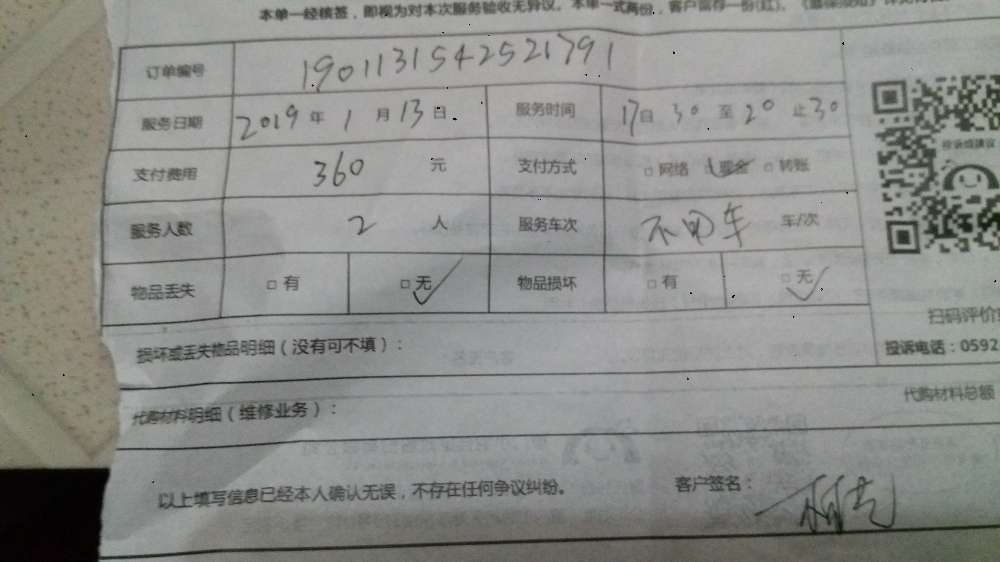 本单一经核签，即视为对本次服务验收无异议。本单一式两份，客户留存一份(红)。
订单编号 1901131542521791
服务日期 2019年1月13日 服务时间 17自30至20止30
支付费用 360 元 支付方式 □网络 现金 □转账
投诉或建议
服务人数 2 人 服务车次 不用车 车/次
物品丢失 □有 □无 物品损坏 □有 □无
扫码评价
损坏或丢失物品明细（没有可不填）：
投诉电话：0592
代购材料明细（维修业务）：
代购材料总额
以上填写信息已经本人确认无误，不存在任何争议纠纷。 客户签名：